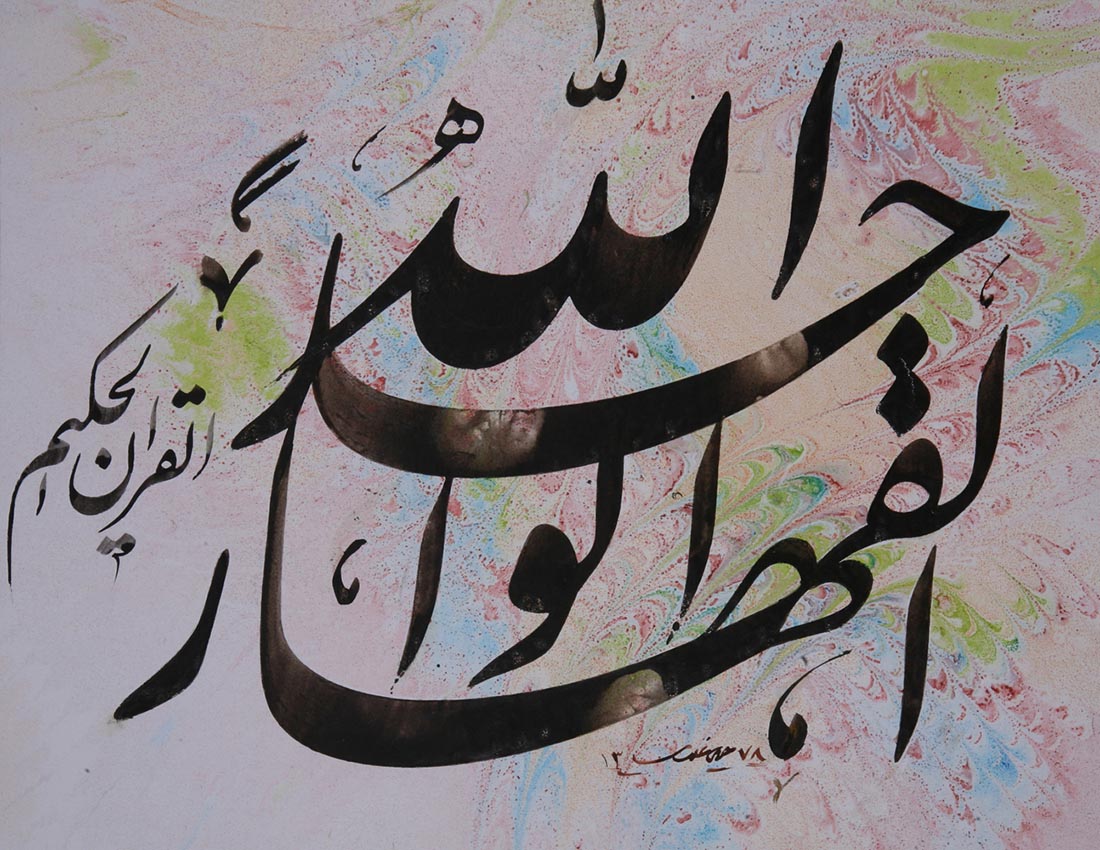 الله
الواحد
القهار
القران الحکیم